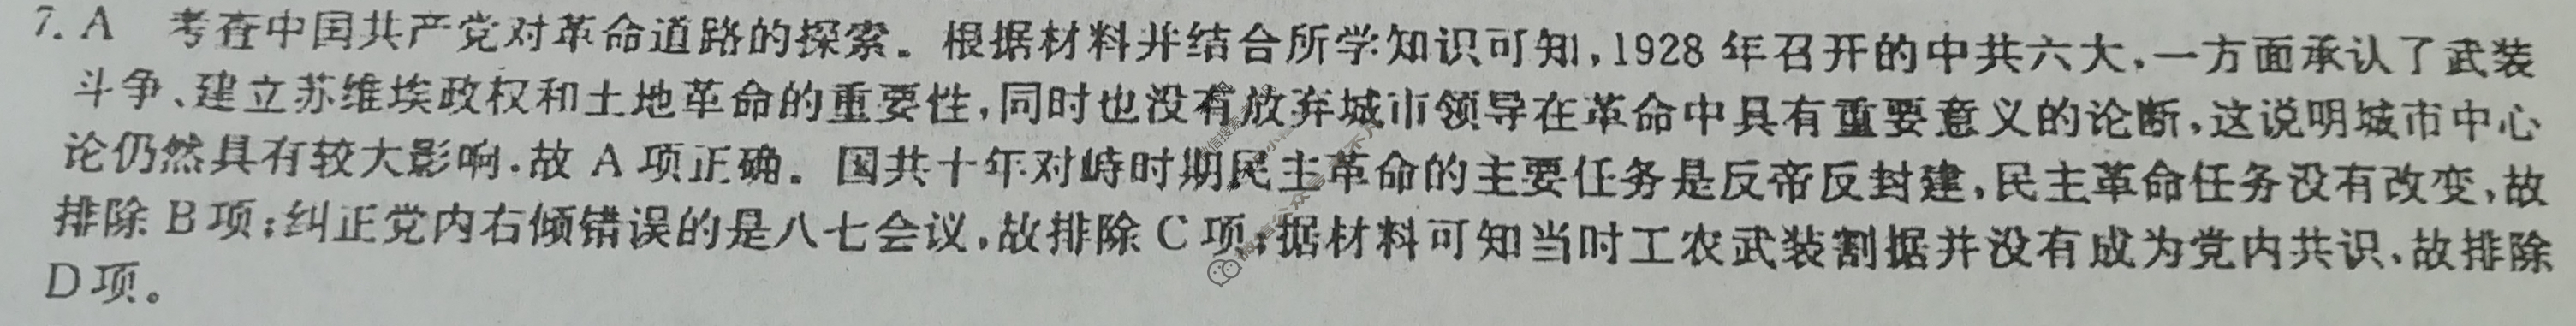 7. A　考查中国共产党对革命道路的探索。根据材料并结合所学知识可知,1928 年召开的中共六大,一方面承认了武装
斗争、建立苏维埃政权和土地革命的重要性,同时也没有放弃城市领导在革命中具有重要意义的论断,这说明城市中心
论仍然具有较大影响,故 A 项正确。国共十年对峙时期民主革命的主要任务是反帝反封建,民主革命任务没有改变,故
排除 B 项;纠正党内右倾错误的是八七会议,故排除 C 项;据材料可知当时工农武装割据并没有成为党内共识,故排除
D 项。